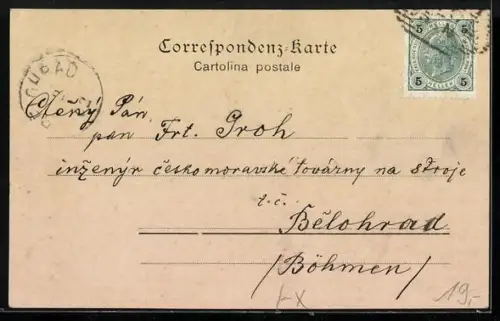 Correspondenz-Karte
Cartolina postale
5 5
HELLER
5 5
Ctěný Pán
pan Frt. Groh
inženýr českomoravské továrny na stroje
t.č.
Bělohrad
/Böhmen/
19.-